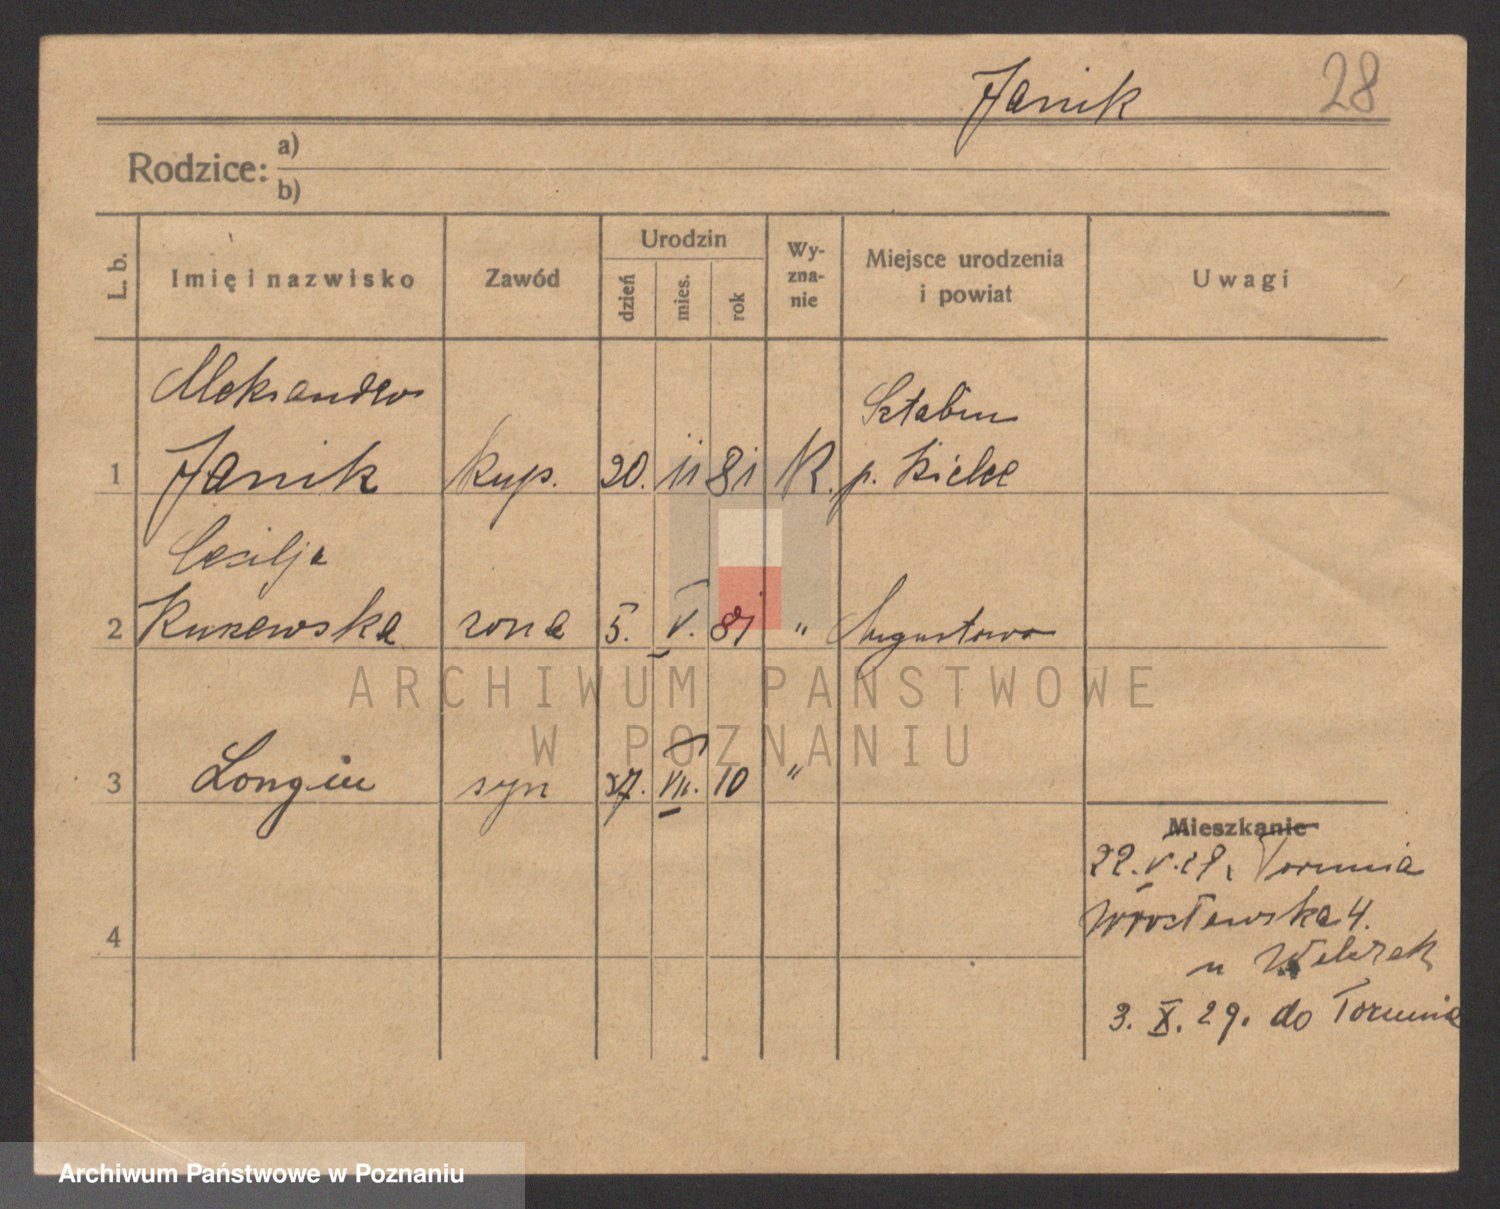 Janik
28
Rodzice: a)
b)
L. b.
Imię i nazwisko
Zawód
Urodzin
dzień
mies.
rok
Wy-
zna-
nie
Miejsce urodzenia
i powiat
Uwagi
Aleksander
Sztabin
1 Janik kup. 20. 11 81 R. p. Kielce
Cecilja
2 żona 5. V. 81 " Augustowo
3 Longin syn 27. VII. 10 "
Mieszkanie
22. V. 29. Torunia
4
Wrocławska 4.
u
3. X. 29. do Torunia
ARCHIWUM PAŃSTWOWE
W POZNANIU
Archiwum Państwowe w Poznaniu